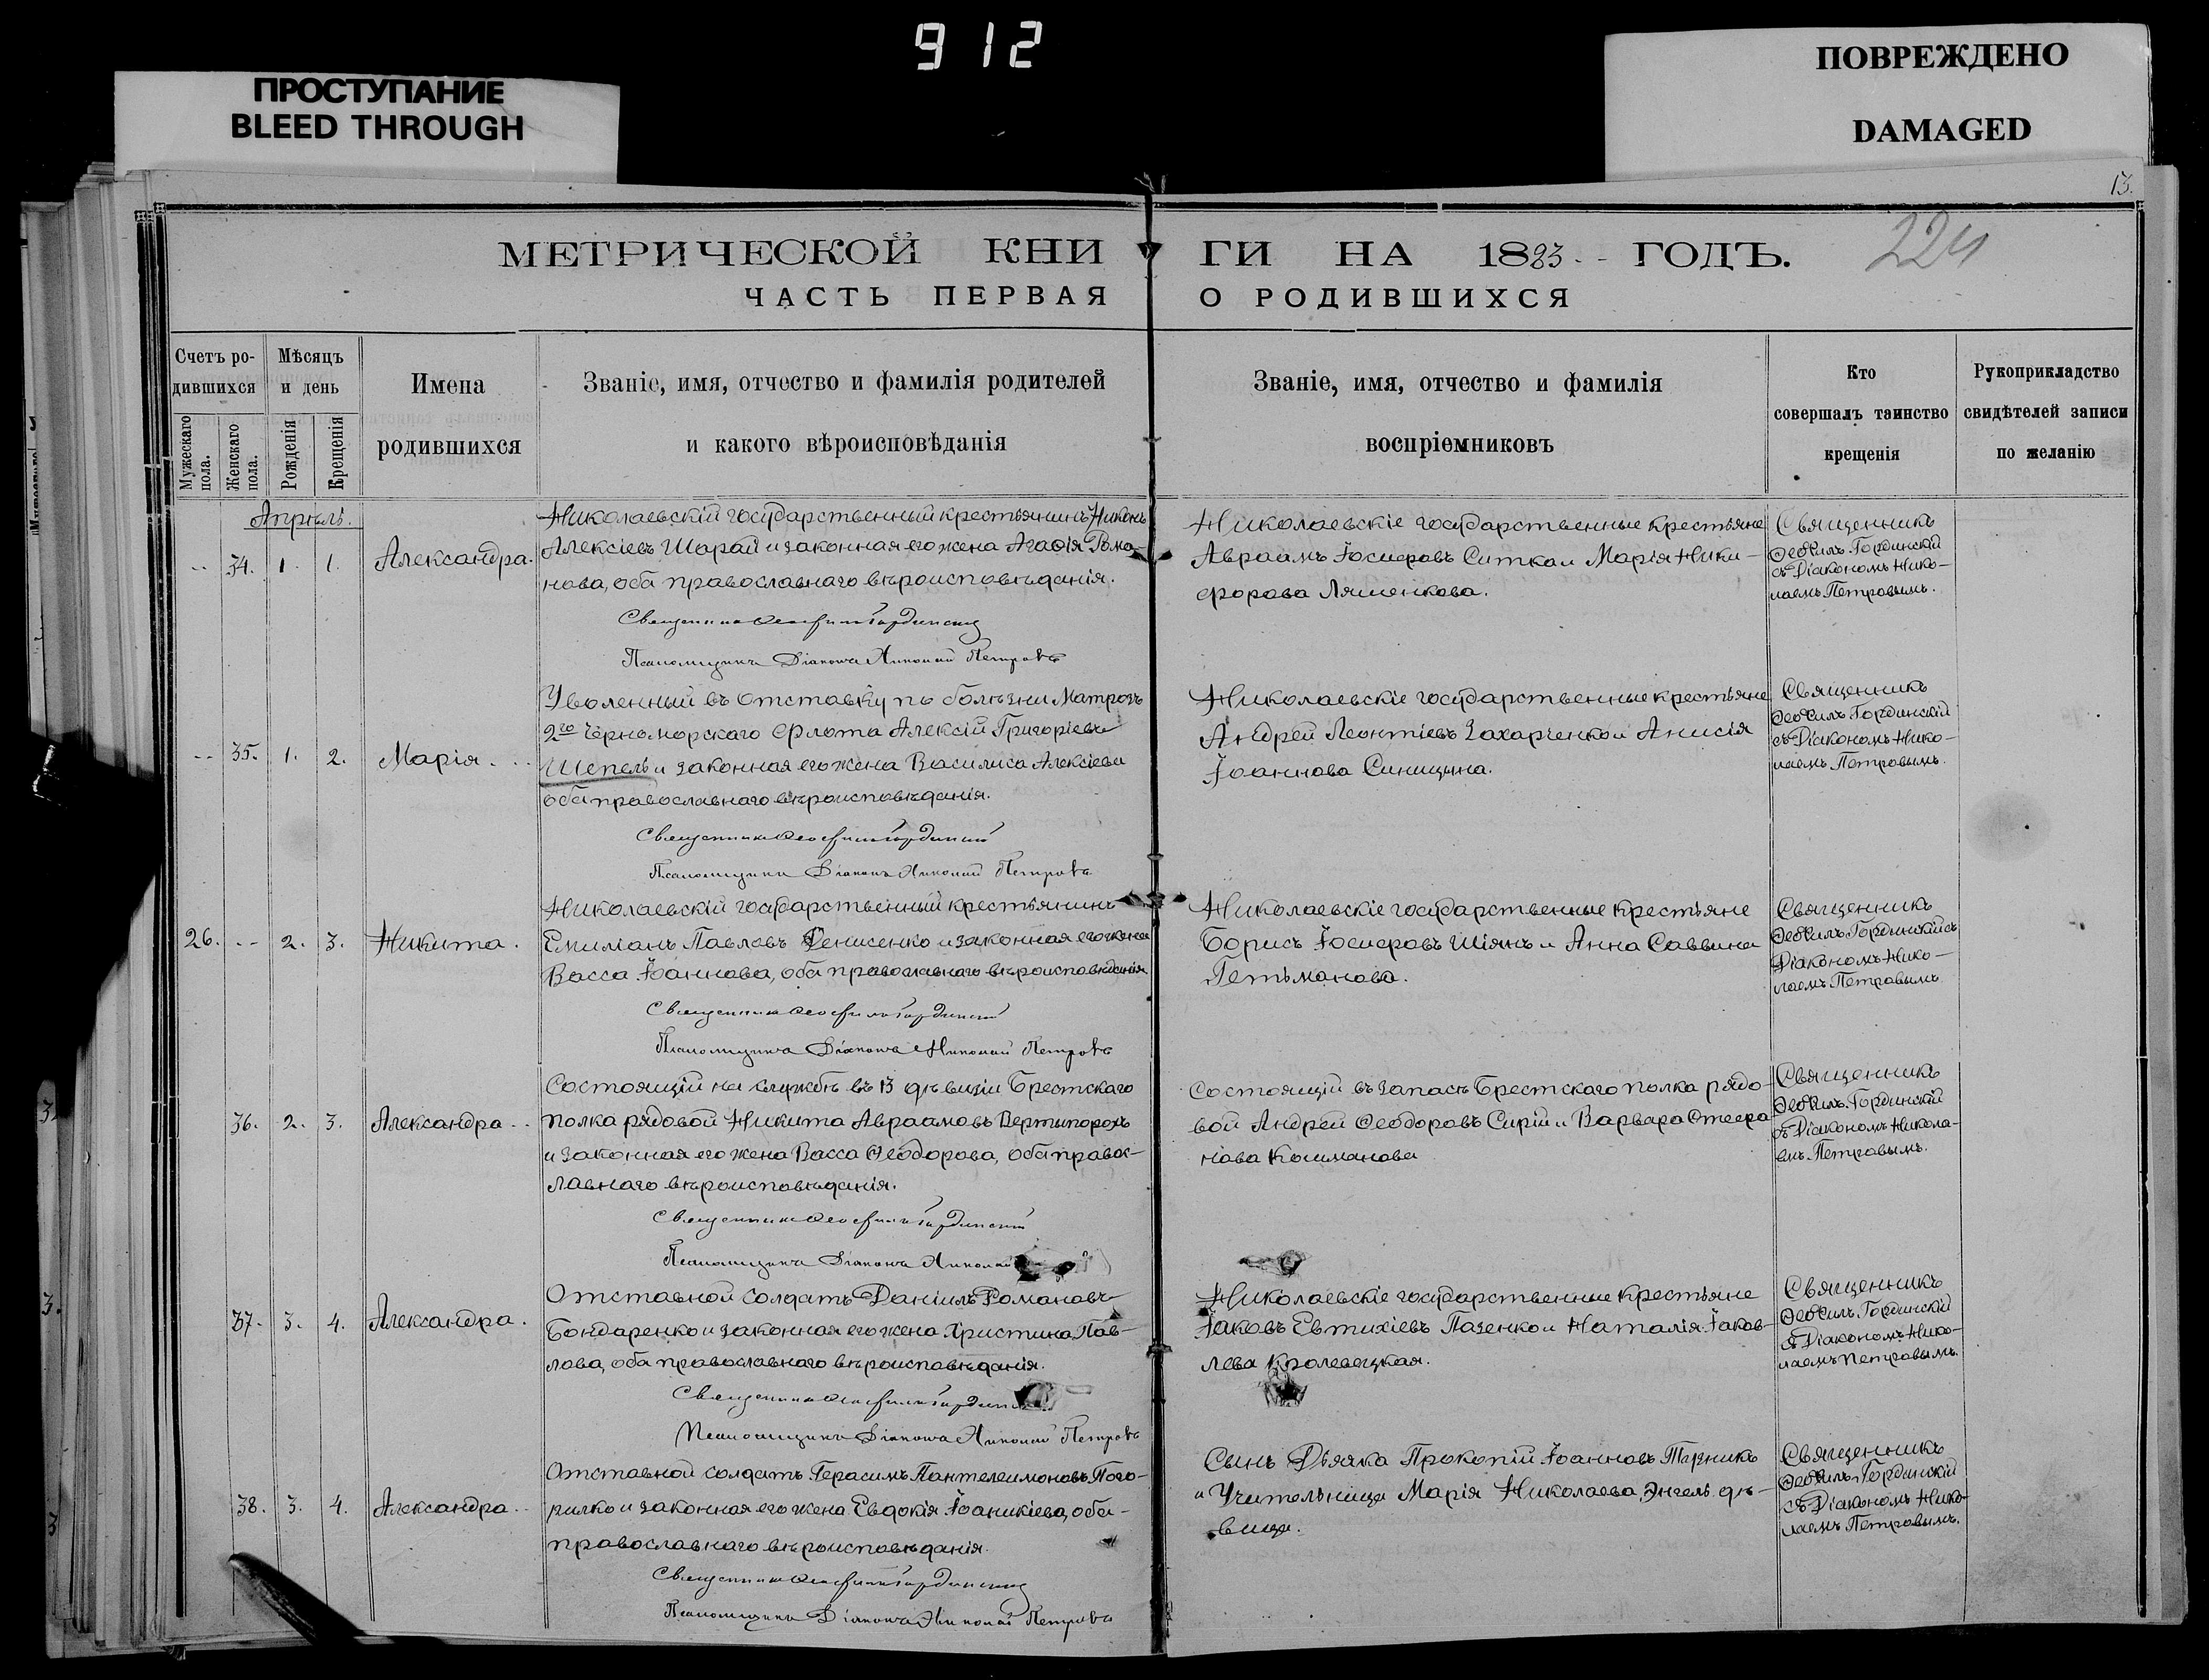 912
ПРОСТУПАНИЕ
BLEED THROUGH
ПОВРЕЖДЕНО
DAMAGED
13.
224
МЕТРИЧЕСКОЙ КНИГИ НА 1883 ГОДЪ.
ЧАСТЬ ПЕРВАЯ О РОДИВШИХСЯ
Счетъ ро-
дившихся
Мужескаго
пола.
Женскаго
пола.
Мѣсяцъ
и день
Рожденія
Крещенія
Имена
родившихся
Званіе, имя, отчество и фамилія родителей
и какого вѣроисповѣданія
Званіе, имя, отчество и фамилія
воспріемниковъ
Кто
совершалъ таинство
крещенія
Рукоприкладство
свидѣтелей записи
по желанію
Апрѣль.
34. 1. 1. Александра.
Николаевскій государственный крестьянинъ Никонъ
Алексіевъ Шарай и законная его жена Агафія Рома-
нова, оба православнаго вѣроисповѣданія.
Священникъ Ѳеофилъ Гординскій
Псаломщикъ Діаконъ Николай Петровъ
Николаевскіе государственные крестьяне
Авраамъ Іосифовъ Ситка и Марія Ники-
форова Ляшенкова.
Священникъ
Ѳеофилъ Гординскій
съ Діакономъ Нико-
лаемъ Петровымъ.
35. 1. 2. Марія.
Уволенный въ отставку по болѣзни Матрозъ
2го Черноморскаго Флота Алексій Григоріевъ
Шепель и законная его жена Василиса Алексіева
оба православнаго вѣроисповѣданія.
Священникъ Ѳеофилъ Гординскій
Псаломщикъ Діаконъ Николай Петровъ
Николаевскіе государственные крестьяне
Андрей Леонтіевъ Захарченко и Анисія
Іоаннова Синицына.
Священникъ
Ѳеофилъ Гординскій
съ Діакономъ Нико-
лаемъ Петровымъ.
26. 2. 3. Никита.
Николаевскій государственный крестьянинъ
Емиліанъ Павловъ Денисенко и законная его жена
Васса Іоаннова, оба православнаго вѣроисповѣданія.
Священникъ Ѳеофилъ Гординскій
Псаломщикъ Діаконъ Николай Петровъ
Николаевскіе государственные крестьяне
Борисъ Іосифовъ Шіянъ и Анна Саввина
Гетьманова.
Священникъ
Ѳеофилъ Гординскій съ
Діакономъ Нико-
лаемъ Петровымъ
36. 2. 3. Александра.
Состоящій на службѣ въ 13 дѣвизіи Брестскаго
полка рядовой Никита Авраамовъ Вертыпорохъ
и законная его жена Васса Ѳеодорова, оба правос-
лавнаго вѣроисповѣданія.
Священникъ Ѳеофилъ Гординскій
Псаломщикъ Діаконъ Николай
Состоящій въ запасѣ Брестскаго полка рядо-
вой Андрей Ѳеодоровъ Сирій и Варвара Стефа-
нова Кошманова
Священникъ
Ѳеофилъ Гординскій
съ Діакономъ Никола-
емъ Петровымъ.
37. 3. 4. Александра.
Отставной солдатъ Даніилъ Романовъ
Бондаренко и законная его жена Христина Пав-
лова, оба православнаго вѣроисповѣданія.
Священникъ Ѳеофилъ Гординскій
Псаломщикъ Діаконъ Николай Петровъ
Николаевскіе государственные крестьяне
Іаковъ Евтихіевъ Пазенко и Наталія Іаков-
лева Кролевецкая.
Священникъ
Ѳеофилъ Гординскій
съ Діакономъ Нико-
лаемъ Петровымъ.
38. 3. 4. Александра.
Отставной солдатъ Герасимъ Пантелеимоновъ Пого-
рилко и законная его жена Евдокія Іоаникіева, оба
православнаго вѣроисповѣданія.
Священникъ Ѳеофилъ Гординскій
Псаломщикъ Діаконъ Николай Петровъ
Сынъ Дьячка Прокопій Іоанновъ
и Учительница Марія Николаева Энгель дѣ-
вица.
Священникъ
Ѳеофилъ Гординскій
съ Діакономъ Нико-
лаемъ Петровымъ.